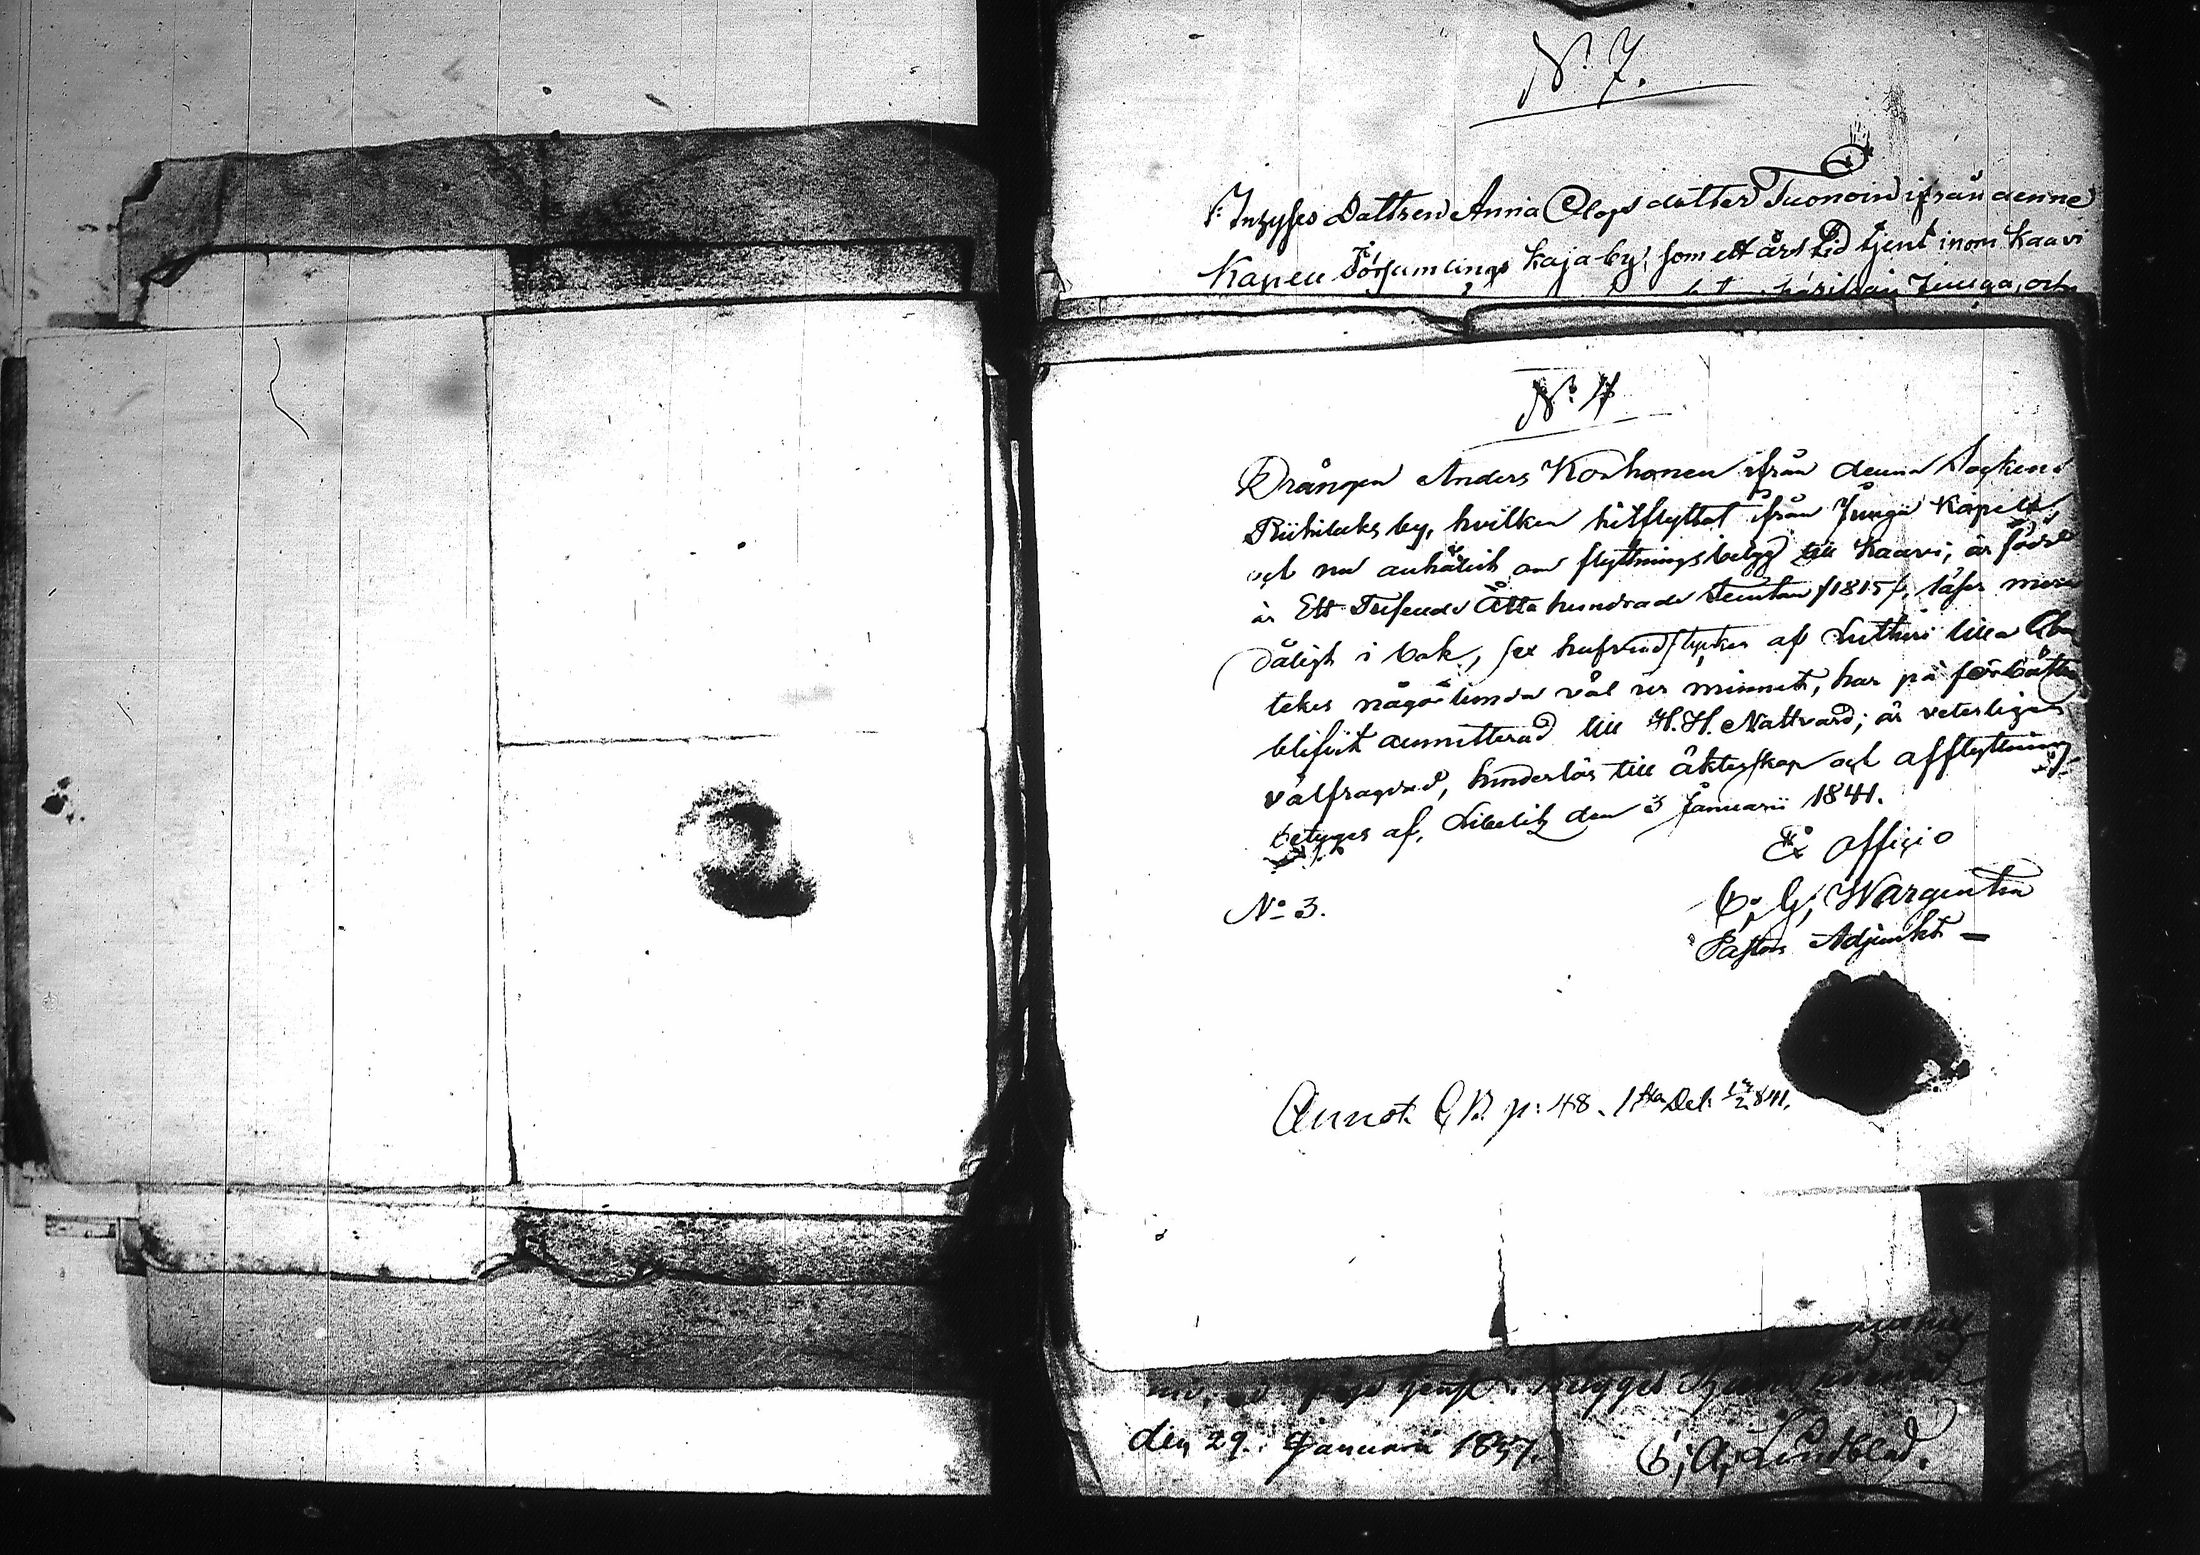 N:o 7.
Inhyses Dottren Anna Olofsdotter Tuonoin ifrån denne
Kapell Församlings Kajaby, som ett års tid tjent inom Kaavi
Juuga, och
N:o 4
Drängen Anders Korhonen ifrån denna Sockens
by, hvilken hitflyttat ifrån Juuga Kapell,
och nu anhållit om flyttningsbetyg till Kaavi; är född
år Ett Tusende Åtta hundrade femton /1815/, läser
dåligt i bok, sex hufvudstycken af Lutheri lilla
tekes någorlunda väl ur minnet, har på förbättr
blifvit admitterad till H. H. Nattvard; är veterligen
välfrägdad, hinderlös till äktenskap och afflyttning,
betyges af, Libelitz den 3 Januarii 1841.
Ex officio
C. G. Wargentin
Pastors Adjunkt
N:o 3.
Annot. C.B. p: 48. 1sta Del. 841.
den 29. Januarii 1837.
C. A. Lindblad.